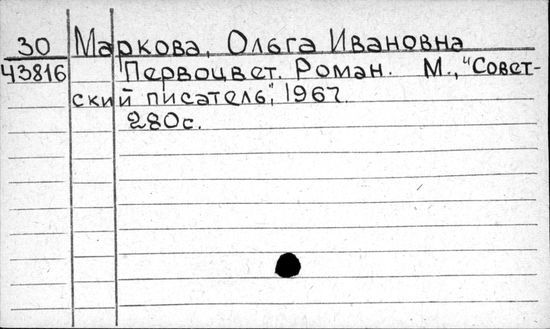 30 Маркова, Ольга Ивановна
43816 Первоцвет. Роман. М., "Совет-
ский писатель", 1967.
280с.